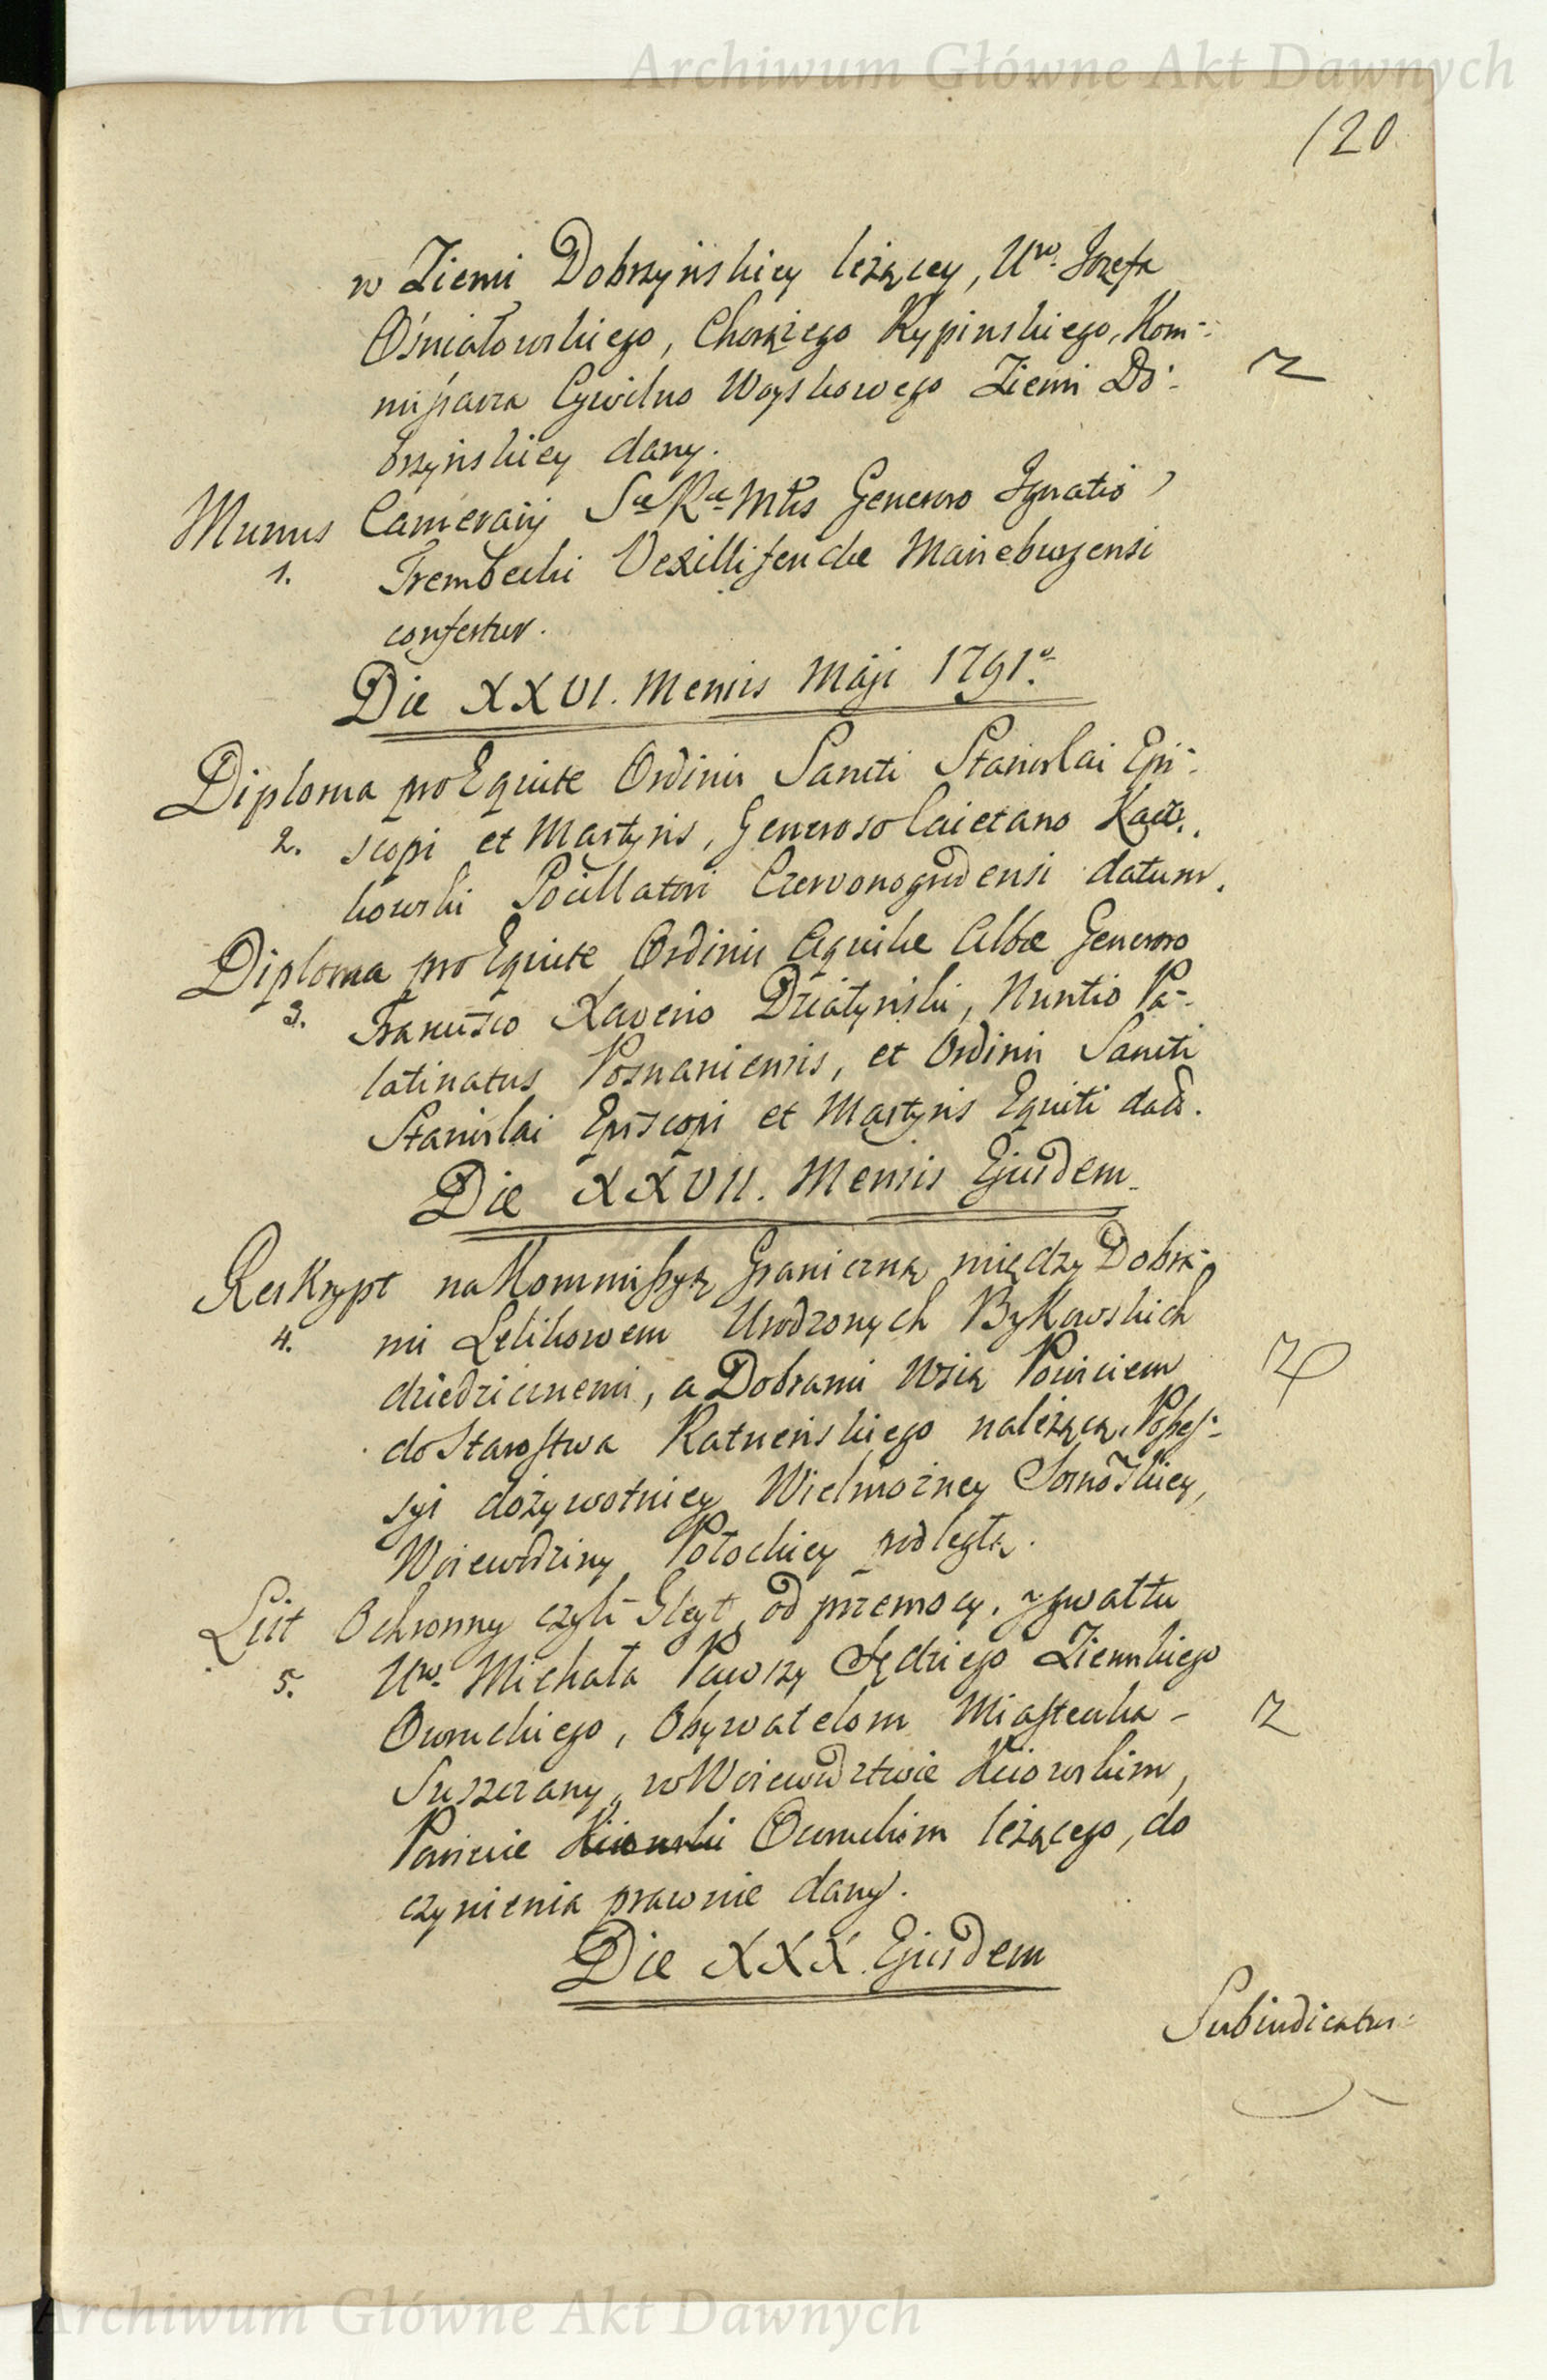 Archiwum Główne Akt Dawnych
120
w Ziemi Dobrzyńskiey leżącey, Uro. Jozefa
Ośmiałowskiego, Chorążego Rypinskiego, Kom-
missarza Cywilno Woyskowego Ziemi Do-
brzyńskiey dany.
Munus Camerarij Sæ Ræ Mtis Generoso Ignatio
1. Trembecki Vexilliferidæ Marieburgensi
confertur.
Die XXVI. Mensis Maji 1791o
Diploma pro Equite Ordinis Sancti Stanislai Epi-
2. scopi et Martyris, Generoso Caietano
kowski Pocillatori Czerwonogrodensi datum.
Diploma pro Equite Ordinis Aquilæ Albæ Generoso
3. Francisco Xaverio Działyński, Nuntio Pa-
latinatus Posnaniensis, et Ordinis Sancti
Stanislai Episcopi et Martyris Equiti dato.
Die XXVII. Mensis Ejusdem
Reskrypt na Kommissyą Graniczną między Dobra-
4. mi Lelikowem Urodzonych Bykowskich
dziedzicznemi, a Dobrami Wsią Powiciem
do Starostwa Ratneńskiego należącą, Posses-
syi dożywotniey Wielmożney Sosnoskiey,
Woiewodziny Połockiey podległą.
List Ochronny czyli Gleyt od przemocy, y gwałtu
5. Uro. Michała Pawszy Sędziego Ziemskiego
Owruckiego, Obywatelom Miasteczka
Suszczany, w Woiewodztwie Kiiowskim,
Powiecie Kiiowski Owruckim leżącego, do
czynienia prawnie dany.
Die XXX Ejusdem
Subindicatur
Archiwum Główne Akt Dawnych